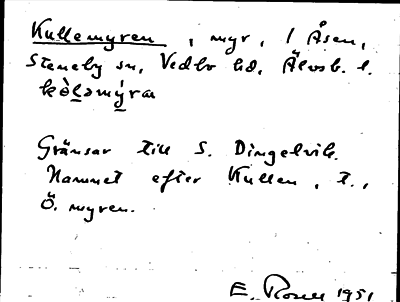 Kullemyren, myr, 1 Åsen,
Steneby sn, Vedbo hd, Älvsb. l.
kòləmýra
Gränsar till S. Dingelvik.
Namnet efter Kullen, t.,
Ö. myren.
E. 1951